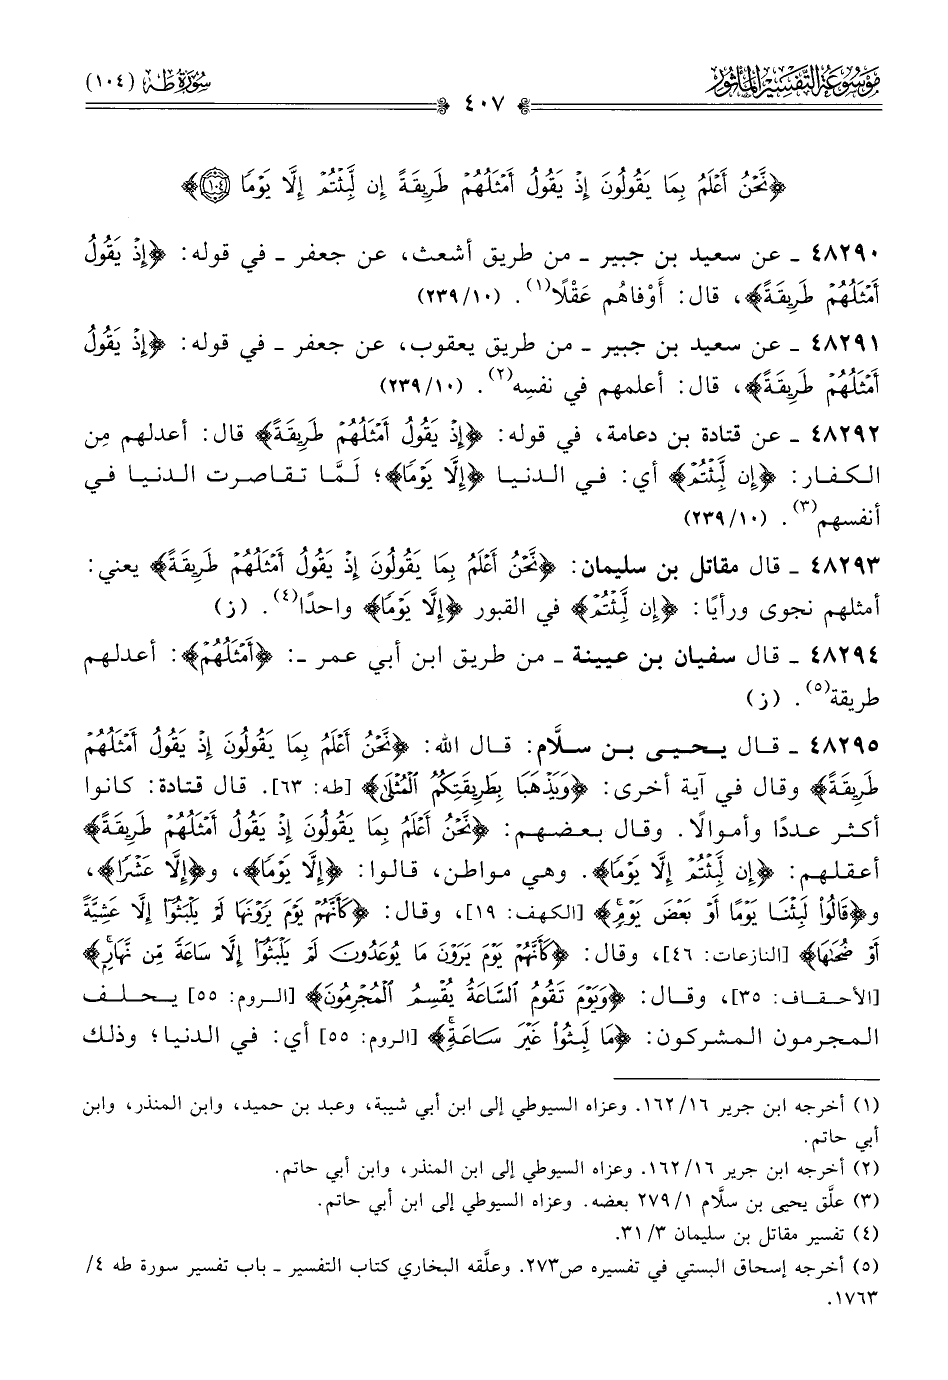 مَوْسُوعَةُ التَّفْسِيرِ المَأْثُور
سُورَةُ طه (١٠٤)
٤٠٧
﴿نَّحْنُ أَعْلَمُ بِمَا يَقُولُونَ إِذْ يَقُولُ أَمْثَلُهُمْ طَرِيقَةً إِن لَّبِثْتُمْ إِلَّا يَوْمًا ١٠٤﴾
٤٨٢٩٠ ـ عن سعيد بن جبير ـ من طريق أشعث، عن جعفر ـ في قوله: ﴿إِذْ يَقُولُ
أَمْثَلُهُمْ طَرِيقَةً﴾، قال: أَوْفاهُم عَقْلًا(١). (٢٣٩/١٠)
٤٨٢٩١ ـ عن سعيد بن جبير ـ من طريق يعقوب، عن جعفر ـ في قوله: ﴿إِذْ يَقُولُ
أَمْثَلُهُمْ طَرِيقَةً﴾، قال: أعلمهم في نفسِه(٢). (٢٣٩/١٠)
٤٨٢٩٢ ـ عن قتادة بن دعامة، في قوله: ﴿إِذْ يَقُولُ أَمْثَلُهُمْ طَرِيقَةً﴾ قال: أعدلهم مِن
الكفار: ﴿إِن لَّبِثْتُمْ﴾ أي: في الدنيا ﴿إِلَّا يَوْمًا﴾؛ لَمَّا تقاصرت الدنيا في
أنفسهم(٣). (٢٣٩/١٠)
٤٨٢٩٣ ـ قال مقاتل بن سليمان: ﴿نَّحْنُ أَعْلَمُ بِمَا يَقُولُونَ إِذْ يَقُولُ أَمْثَلُهُمْ طَرِيقَةً﴾ يعني:
أمثلهم نجوى ورأيًا: ﴿إِن لَّبِثْتُمْ﴾ في القبور ﴿إِلَّا يَوْمًا﴾ واحدًا(٤). (ز)
٤٨٢٩٤ ـ قال سفيان بن عيينة ـ من طريق ابن أبي عمر ـ: ﴿أَمْثَلُهُمْ﴾: أعدلهم
طريقة(٥). (ز)
٤٨٢٩٥ ـ قال يحيى بن سلَّام: قال الله: ﴿نَّحْنُ أَعْلَمُ بِمَا يَقُولُونَ إِذْ يَقُولُ أَمْثَلُهُمْ
طَرِيقَةً﴾ وقال في آية أخرى: ﴿وَيَذْهَبَا بِطَرِيقَتِكُمُ الْمُثْلَى﴾ [طه: ٦٣]. قال قتادة: كانوا
أكثر عددًا وأموالًا. وقال بعضهم: ﴿نَّحْنُ أَعْلَمُ بِمَا يَقُولُونَ إِذْ يَقُولُ أَمْثَلُهُمْ طَرِيقَةً﴾
أعقلهم: ﴿إِن لَّبِثْتُمْ إِلَّا يَوْمًا﴾. وهي مواطن، قالوا: ﴿إِلَّا يَوْمًا﴾، و﴿إِلَّا عَشْرًا﴾،
و﴿قَالُوا لَبِثْنَا يَوْمًا أَوْ بَعْضَ يَوْمٍ﴾ [الكهف: ١٩]، وقال: ﴿كَأَنَّهُمْ يَوْمَ يَرَوْنَهَا لَمْ يَلْبَثُوا إِلَّا عَشِيَّةً
أَوْ ضُحَاهَا﴾ [النازعات: ٤٦]، وقال: ﴿كَأَنَّهُمْ يَوْمَ يَرَوْنَ مَا يُوعَدُونَ لَمْ يَلْبَثُوا إِلَّا سَاعَةً مِّن نَّهَارٍ﴾
[الأحقاف: ٣٥]، وقال: ﴿وَيَوْمَ تَقُومُ السَّاعَةُ يُقْسِمُ الْمُجْرِمُونَ﴾ [الروم: ٥٥] يحلف
المجرمون المشركون: ﴿مَا لَبِثُوا غَيْرَ سَاعَةٍ﴾ [الروم: ٥٥] أي: في الدنيا؛ وذلك
(١) أخرجه ابن جرير ١٦/ ١٦٢. وعزاه السيوطي إلى ابن أبي شيبة، وعبد بن حميد، وابن المنذر، وابن
أبي حاتم.
(٢) أخرجه ابن جرير ١٦/ ١٦٢. وعزاه السيوطي إلى ابن المنذر، وابن أبي حاتم.
(٣) علَّق يحيى بن سلَّام ١/ ٢٧٩ بعضه. وعزاه السيوطي إلى ابن أبي حاتم.
(٤) تفسير مقاتل بن سليمان ٣/ ٣١.
(٥) أخرجه إسحاق البستي في تفسيره ص٢٧٣. وعلَّقه البخاري كتاب التفسير ـ باب تفسير سورة طه ٤/
١٧٦٣.